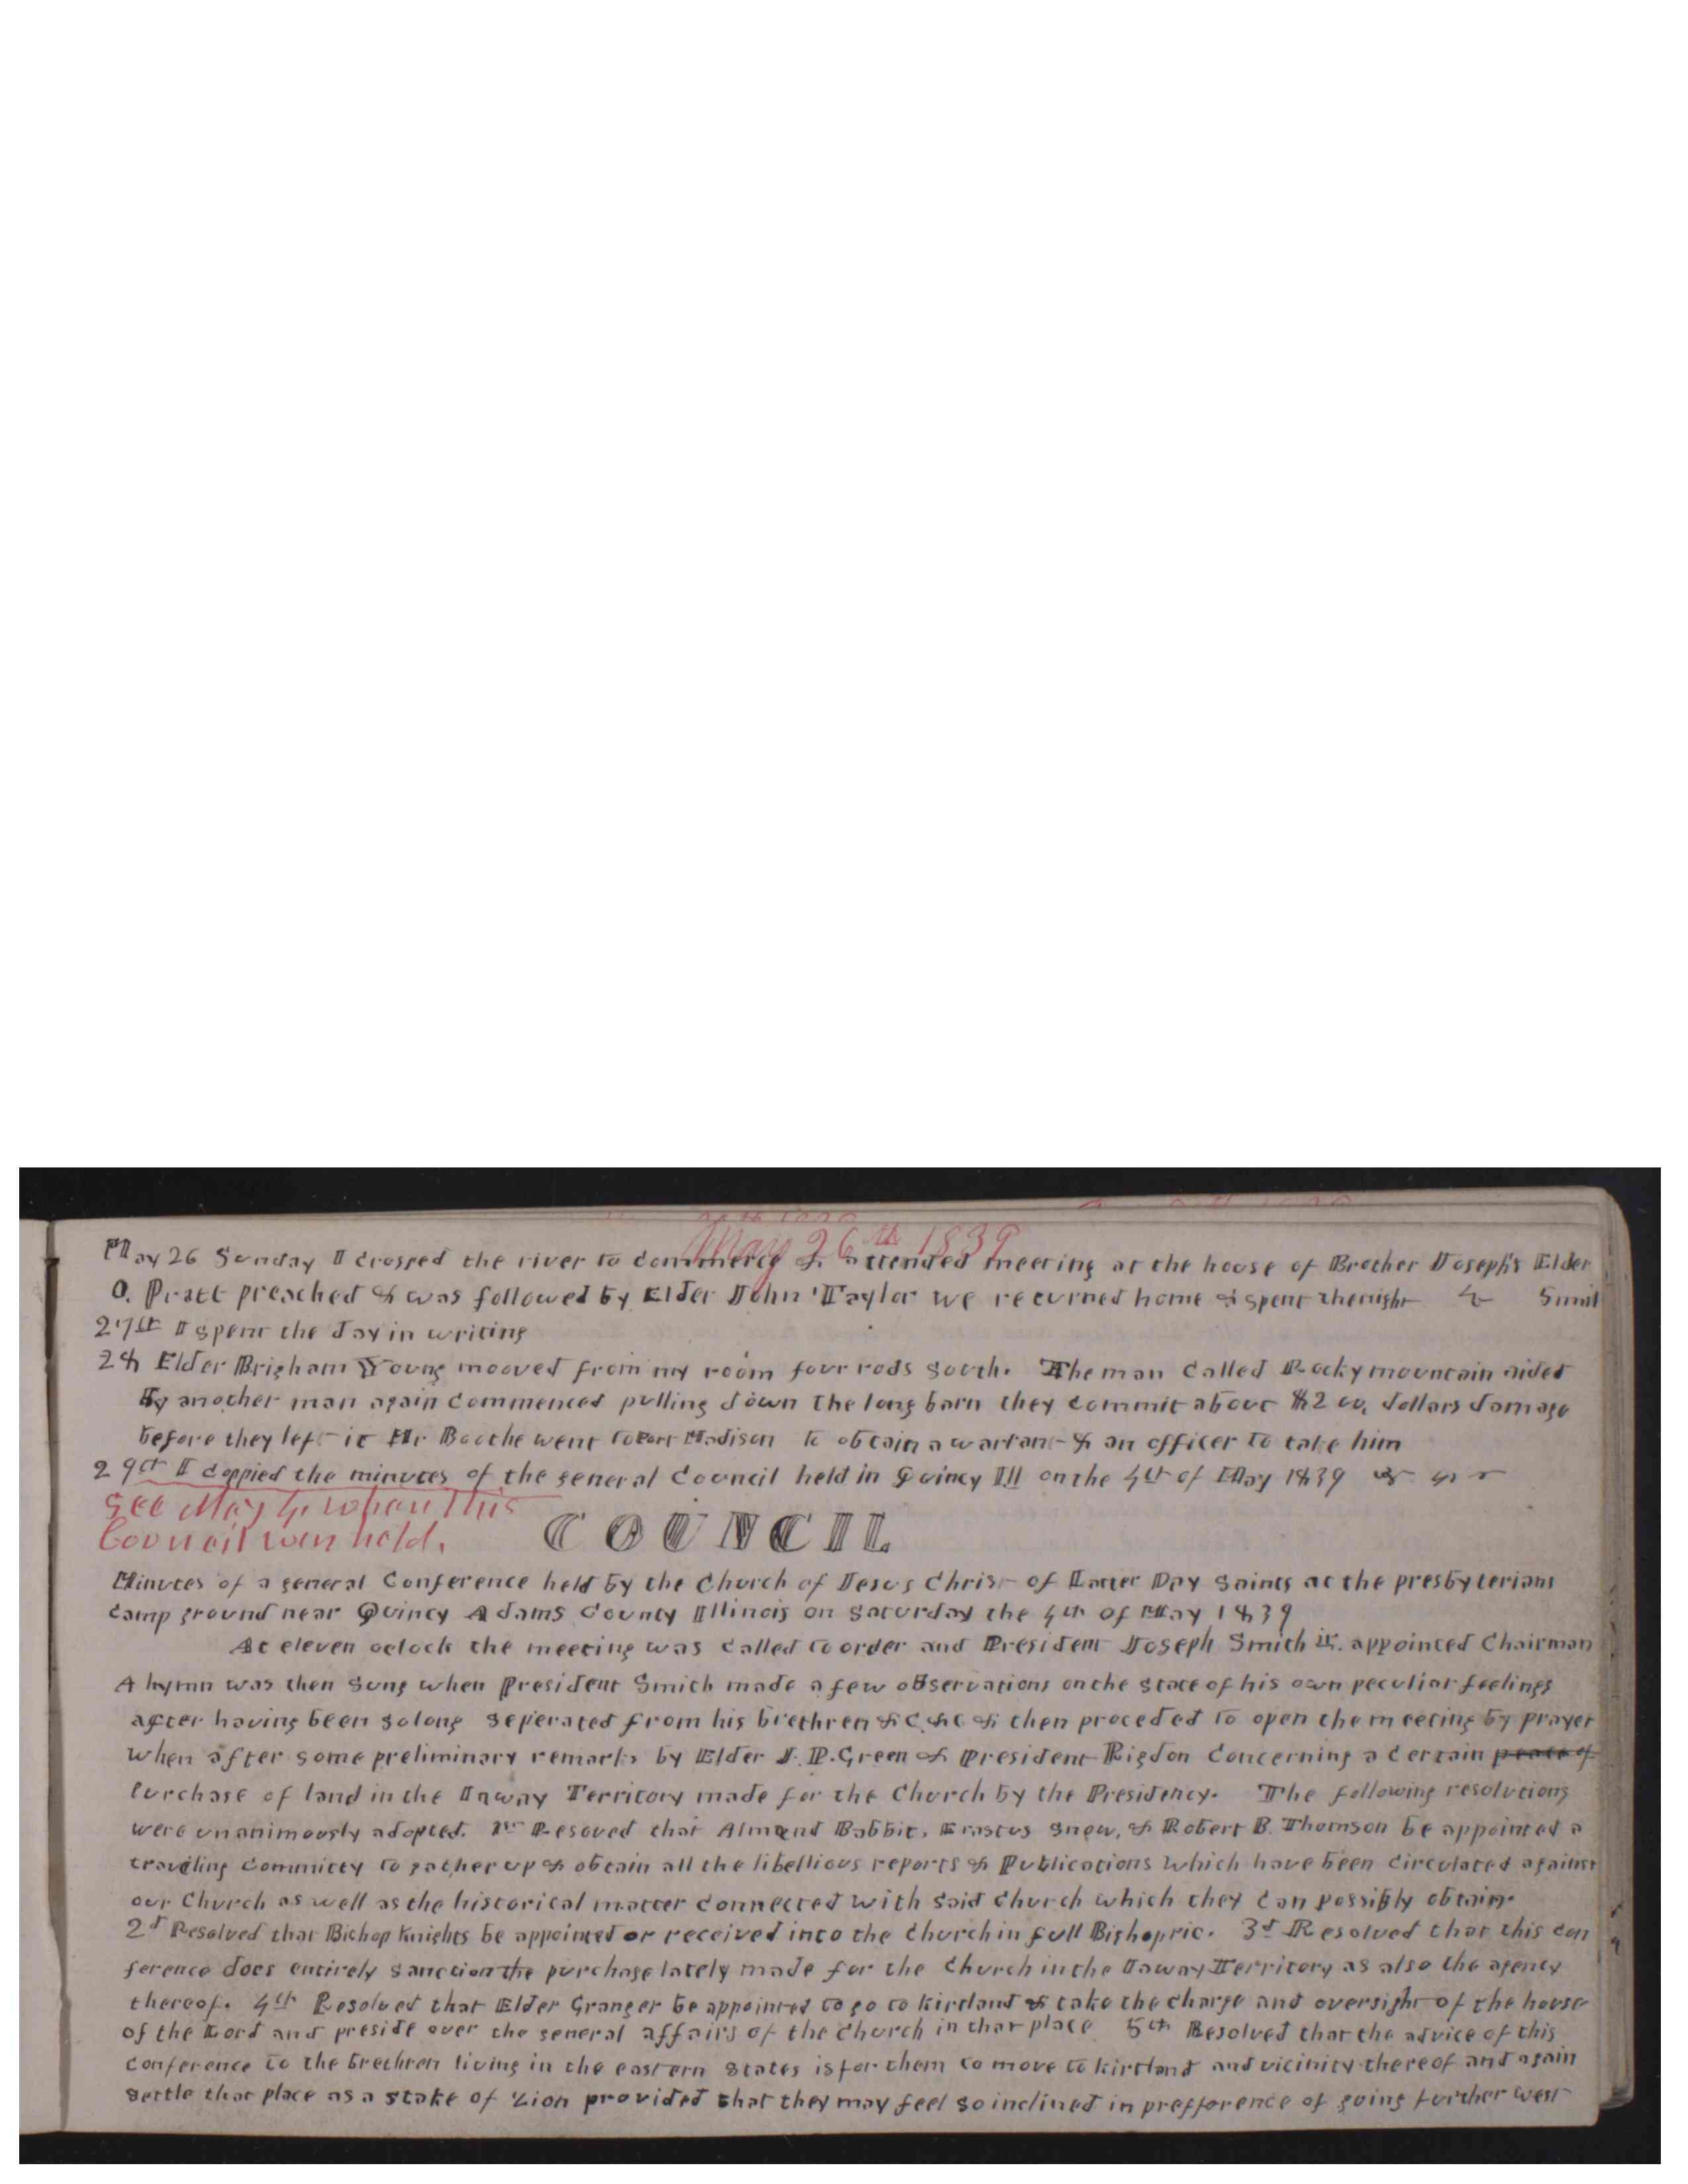 May 26th 1839
May 26 Sunday I crossed the river to commerce & attended meeting at the house of Brother Joseph's Elder
O. Pratt preached & was followed by Elder John Taylor we returned home & spent thenight
27th I spent the day in writing
28 Elder Brigham Young mooved from my room four rods South. The man called Rocky mountain aided
By another man again commenced pulling down the long barn they commit about $200, dollars damage
before they left it Mr Boothe went to Fort Madison to obtain a warrant & an officer to take him
29th I coppied the minutes of the general Council held in Quincy Ill on the 4th of May 1839
See May 4, when This
Council wen held.
COUNCIL
Minutes of a general Conference held by the Church of Jesus Christ of Latter Day Saints at the presbyterians
camp ground near Quincy Adams County Illinois on Saturday the 4th of May 1839
At eleven oclock the meeting was called to order and President Joseph Smith jr. appointed Chairman
A hymn was then Sung when President Smith made a few observations on the state of his own peculiar feelings
after having been so long seperated from his brethren &c, &c & then proceded to open the meeting by prayer
when after some preliminary remarks by Elder J. P. Green & President Rigdon concerning a certain peace of
Purchase of land in the Iaway Territory made for the Church by the Presidency. The following resolutions
were unanimously adopted. 1st Resoved that Almond Babbit, Erastus Snow, & Robert B. Thomson be appointed a
traveling committy to gather up & obtain all the libellious reports & Publications which have been circulated against
our Church as well as the historical matter connected with said church which they can possibly obtain.
2d Resolved that Bishop Knights be appointed or received into the church in full Bishopric. 3d Resolved that this con
ference does entirely sanction the purchase lately made for the Church in the Iaway Territory as also the agency
thereof. 4th Resolved that Elder Granger be appointed to go to kirtland & take the charge and oversight of the house
of the Lord and preside over the general affairs of the church in that place 5th Resolved that the advice of this
conference to the brethren living in the eastern States is for them to move to kirtland and vicinity thereof and again
settle that place as a stake of Zion provided that they may feel so inclined in prefforence of going further west